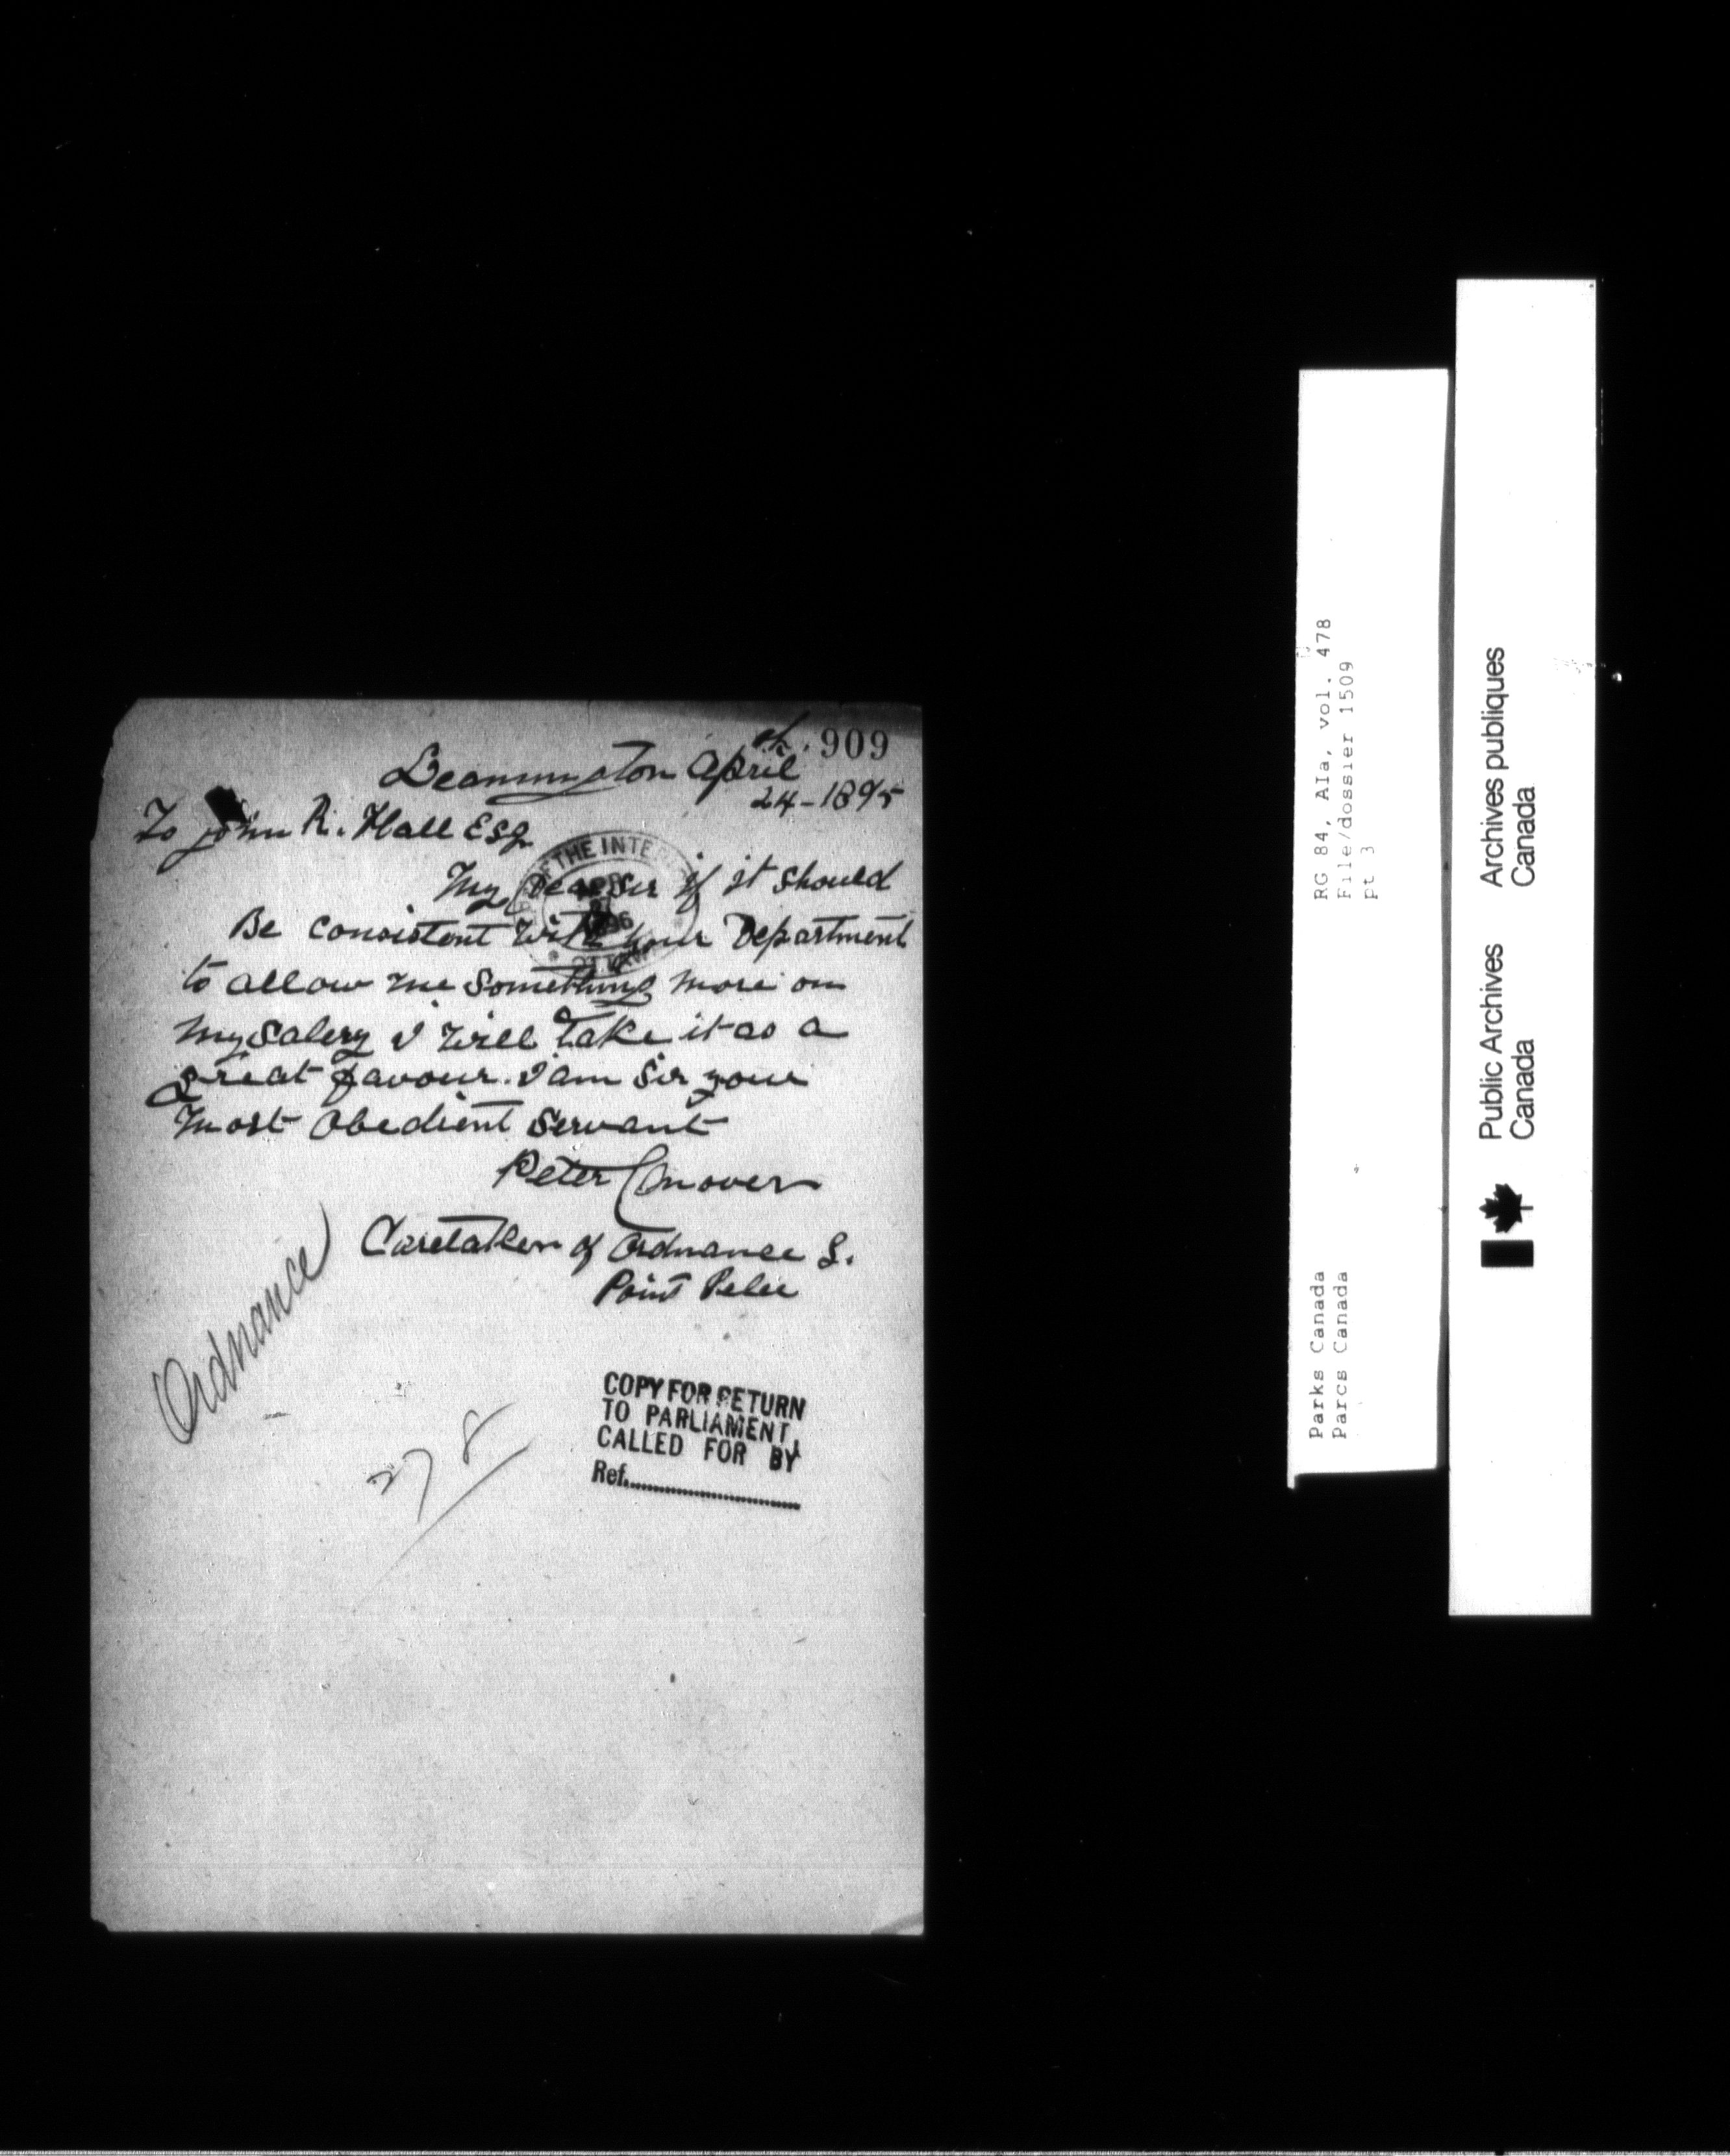 909
Leamington April
24th-1895
To John R. Hall Esq
My Dear Sir if it should
Be consistent with your Department
to allow me something more on
my salery I will take it as a
great favour. I am Sir your
most obedient servant
Peter Conover
Caretaker of Ordnance L.
Point Pelee
Ordnance
278
THE INTE
COPY FOR RETURN
TO PARLIAMENT,
CALLED FOR BY
Ref.
RG 84, AIa, vol. 478
File/dossier 1509
pt 3
Parks Canada
Parcs Canada
Public Archives
Canada
Archives publiques
Canada